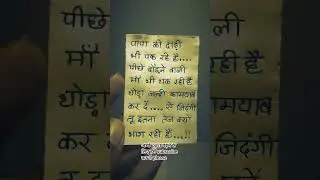 पापा की दाढ़ी
भी पक रहे है....
पीछे दौड़ने वाली
माँ भी थक रही है
थोड़ा जल्दी कामयाब
कर दे.... ऐ जिंदगी
तू इतना तेज क्यों
भाग रही है...!!
subscribe